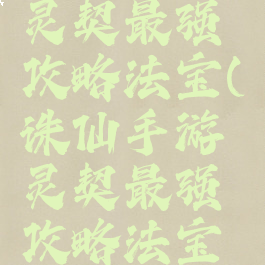 灵契最强
攻略法宝(
诛仙手游
灵契最强
攻略法宝